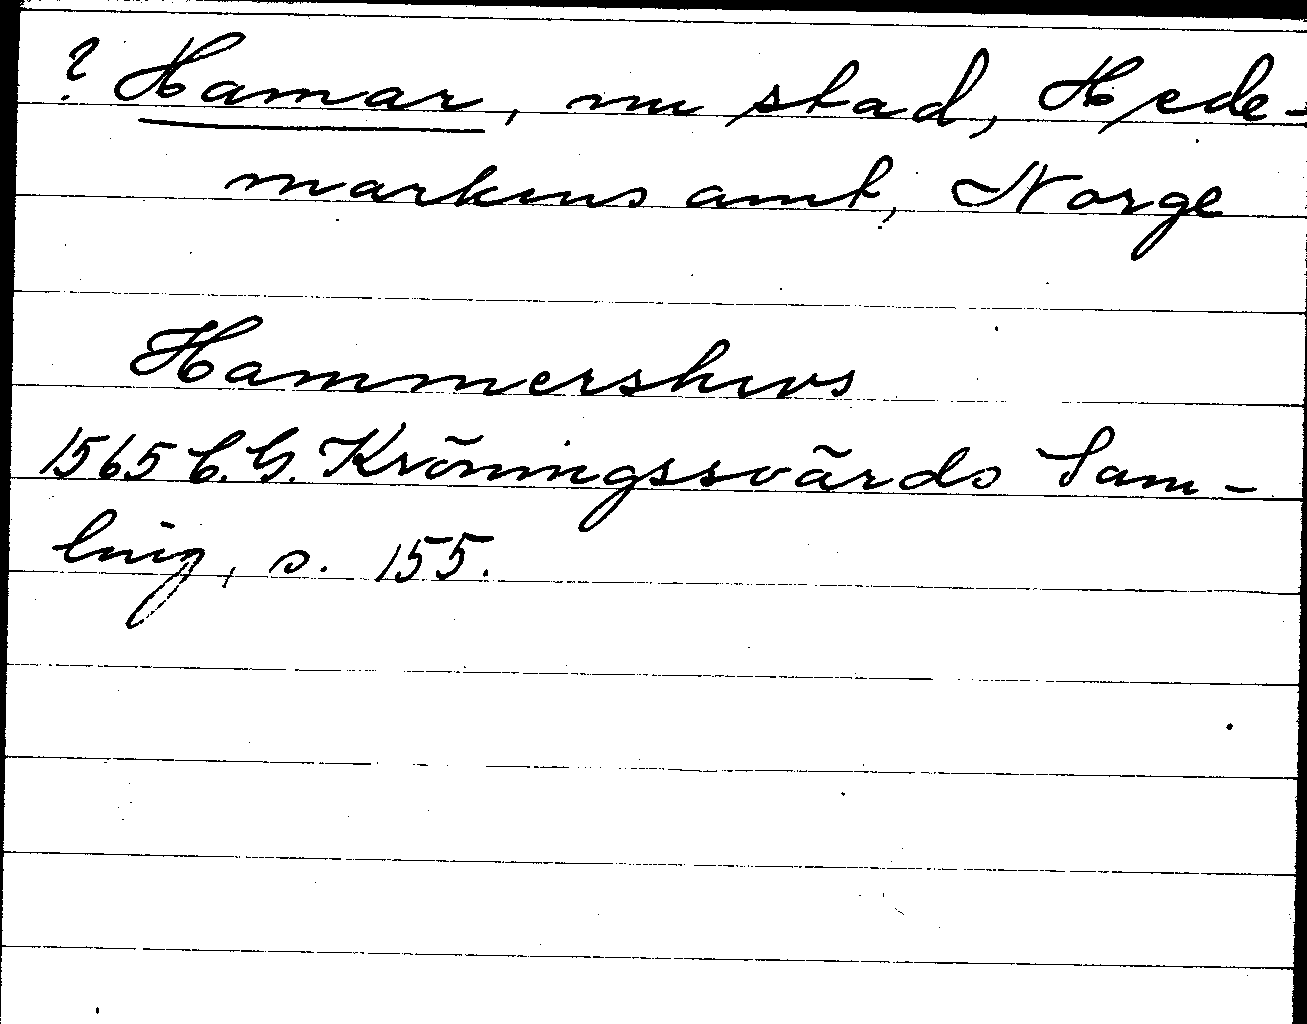 ? Hamar, nu stad, Hede-
markens amt, Norge
Hammershws
1565 C.G. Kröningssvärds Sam-
ling, s. 155.